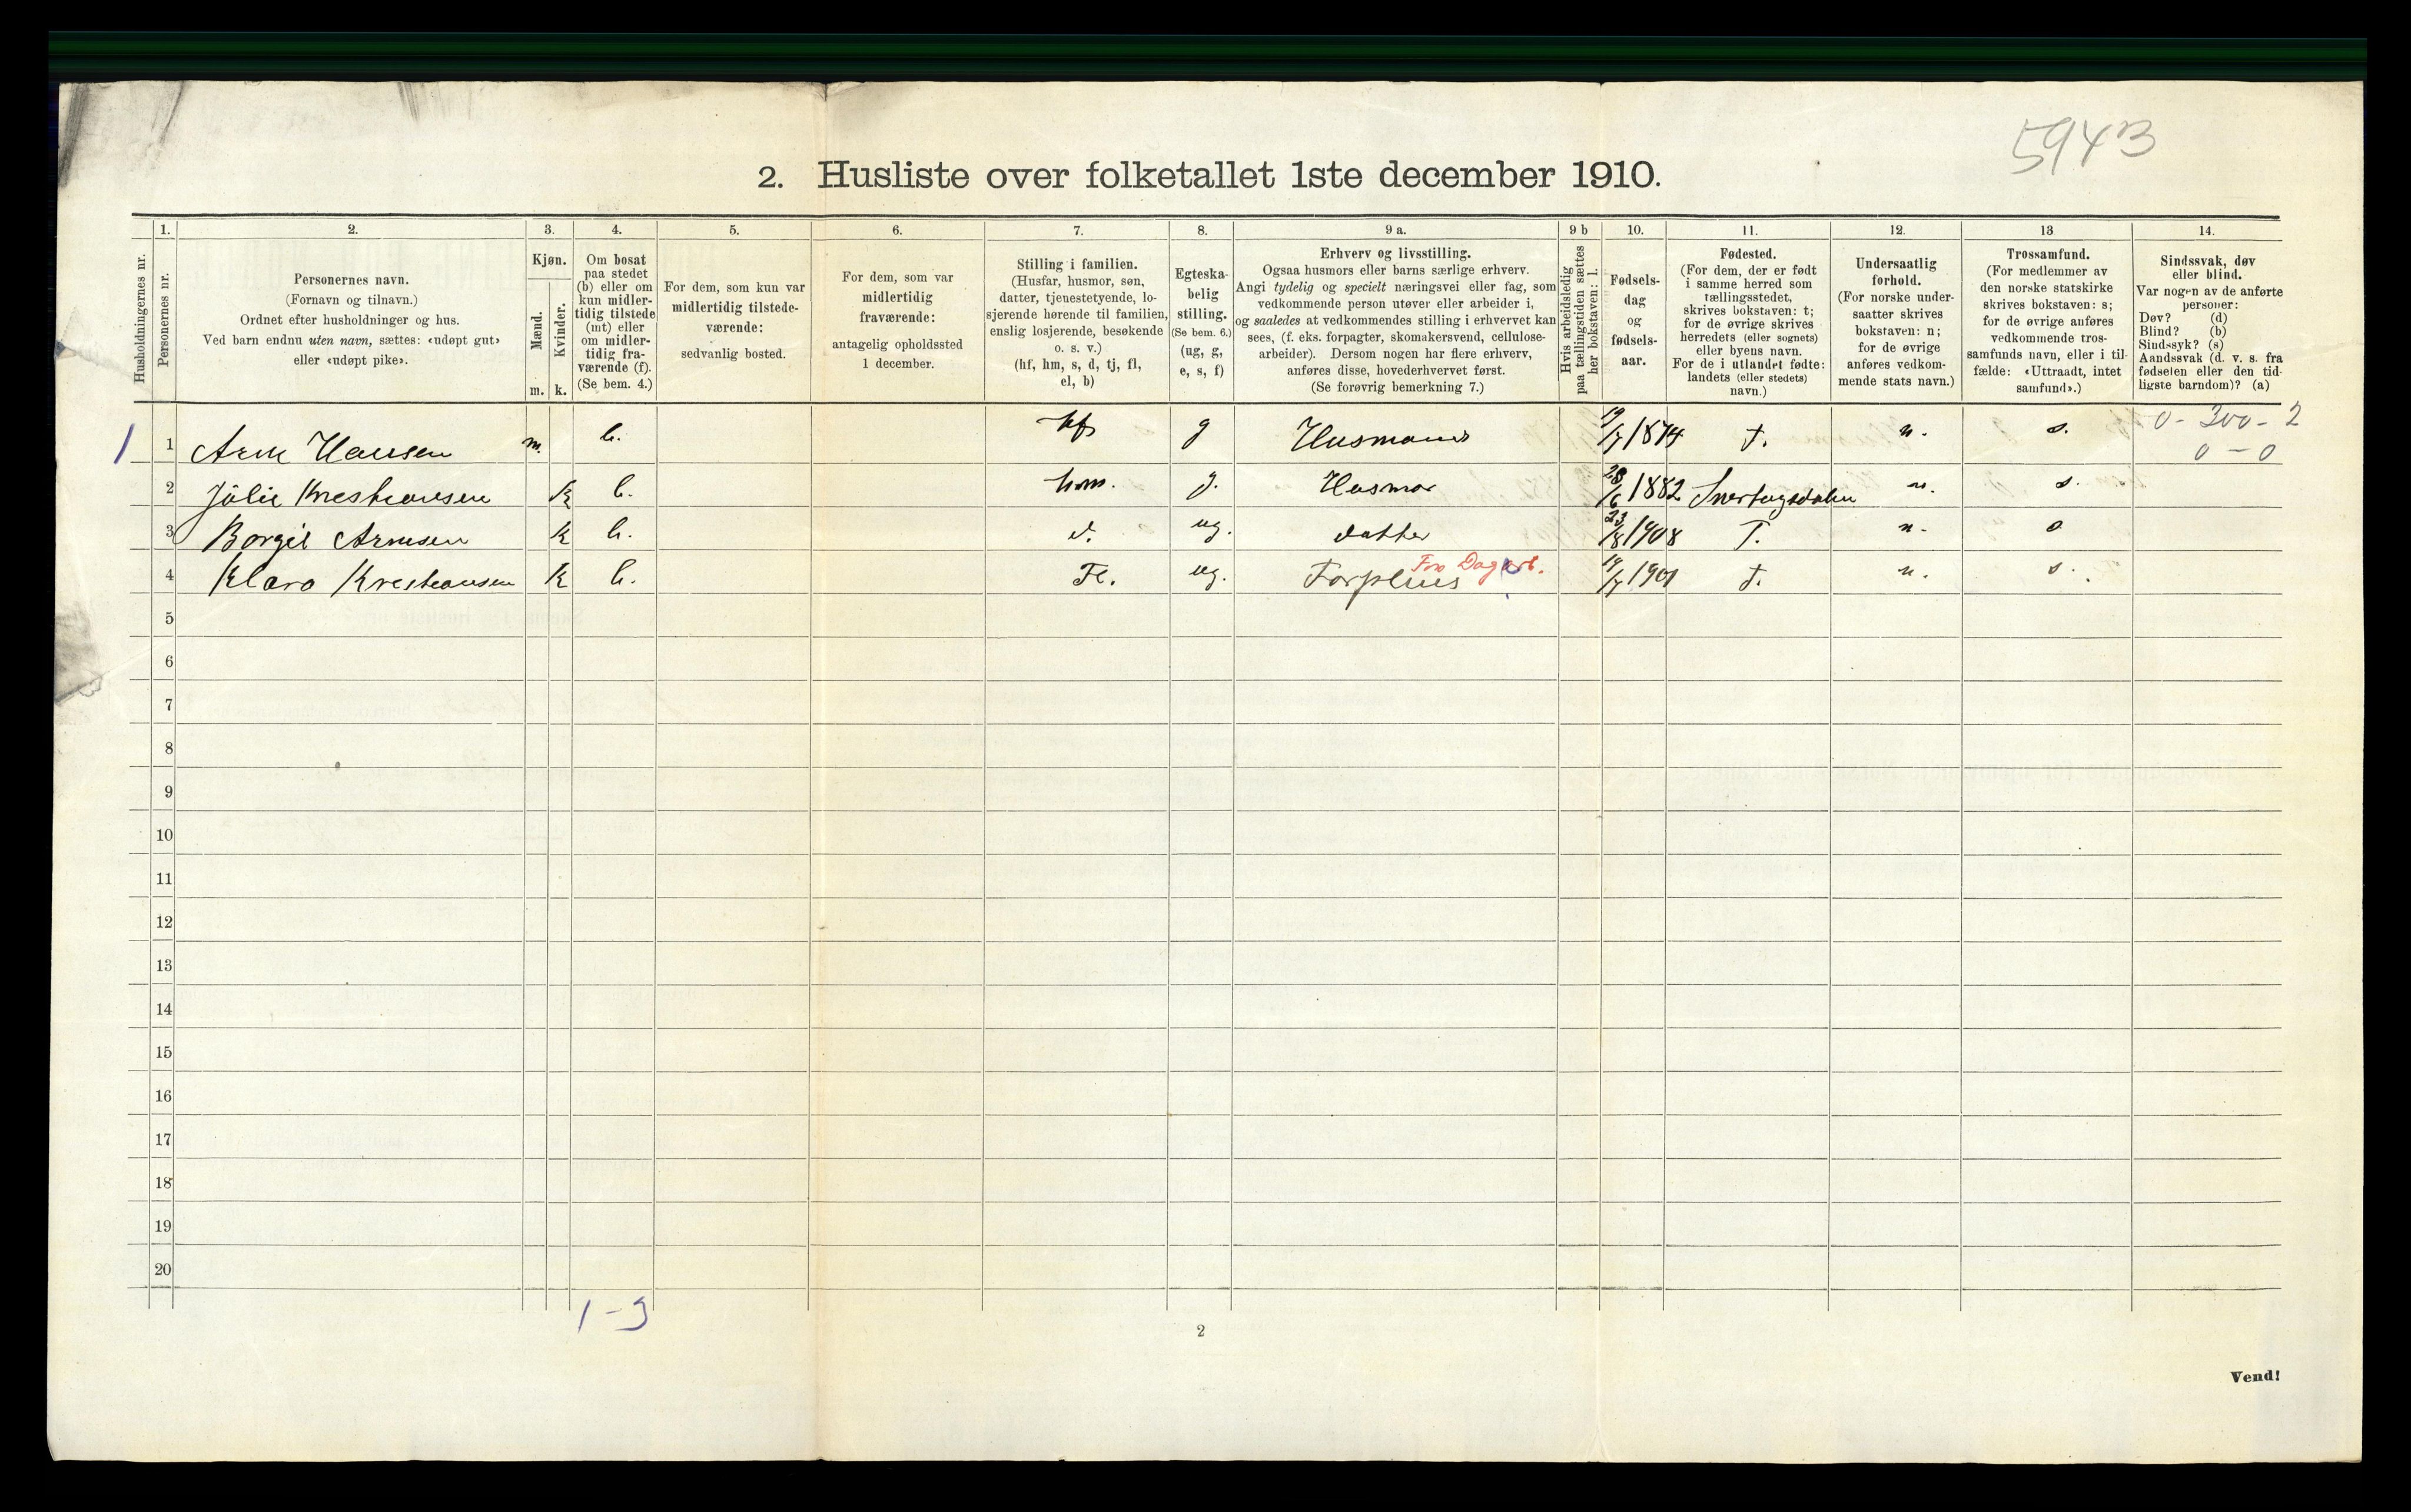 5943
2. Husliste over folketallet 1ste december 1910.
Husholdningernes nr.
1. Personernes nr.
2. Personernes navn.
(Fornavn og tilnavn.)
Ordnet efter husholdninger og hus.
Ved barn endnu uten navn, sættes: «udøpt gut»
eller «udøpt pike».
3. Kjøn.
Mænd. m.
Kvinder. k.
4. Om bosat
paa stedet
(b) eller om
kun midler-
tidig tilstede
(mt) eller
om midler-
tidig fra-
værende (f).
(Se bem. 4.)
5. For dem, som kun var
midlertidig tilstede-
værende:
sedvanlig bosted.
6. For dem, som var
midlertidig
fraværende:
antagelig opholdssted
1 december.
7. Stilling i familien.
(Husfar, husmor, søn,
datter, tjenestetyende, lo-
sjerende hørende til familien,
enslig losjerende, besøkende
o. s. v.)
(hf, hm, s, d, tj, fl,
el, b)
8. Egteska-
belig
stilling.
(Se bem. 6.)
(ug, g,
e, s, f)
9 a. Erhverv og livsstilling.
Ogsaa husmors eller barns særlige erhverv.
Angi tydelig og specielt næringsvei eller fag, som
vedkommende person utøver eller arbeider i,
og saaledes at vedkommendes stilling i erhvervet kan
sees, (f. eks. forpagter, skomakersvend, cellulose-
arbeider). Dersom nogen har flere erhverv,
anføres disse, hovederhvervet først.
(Se forøvrig bemerkning 7.)
9 b Hvis arbeidsledig
paa tællingstiden sættes
her bokstaven: l.
10. Fødsels-
dag
og
fødsels-
aar.
11. Fødested.
(For dem, der er født
i samme herred som
tællingsstedet,
skrives bokstaven: t;
for de øvrige skrives
herredets (eller sognets)
eller byens navn.
For de i utlandet fødte:
landets (eller stedets)
navn.)
12. Undersaatlig
forhold.
(For norske under-
saatter skrives
bokstaven: n;
for de øvrige
anføres vedkom-
mende stats navn.)
13 Trossamfund.
(For medlemmer av
den norske statskirke
skrives bokstaven: s;
for de øvrige anføres
vedkommende tros-
samfunds navn, eller i til-
fælde: «Uttraadt, intet
samfund».)
14. Sindssvak, døv
eller blind.
Var nogen av de anførte
personer:
Døv? (d)
Blind? (b)
Sindssyk? (s)
Aandssvak (d. v. s. fra
fødselen eller den tid-
ligste barndom)? (a)
1 1 Arne Hansen m. b. hf g Husmand 19/7 1874 t. n. s. 0 - 300 - 2
0 - 0
2 Julie Kresteansen k b. hm. g. Husmor 28/6 1882 n. s.
3 Borgil Arnesen k b. d. ug. datter 23/8 1908 T. n. s
4 Klara Kresteansen k b. Fl. ug. Forpleies Fra Dagarb. 19/7 1901 t. n. s.
5
6
7
8
9
10
11
12
13
14
15
16
17
18
19
20
1 - 3
2
Vend!